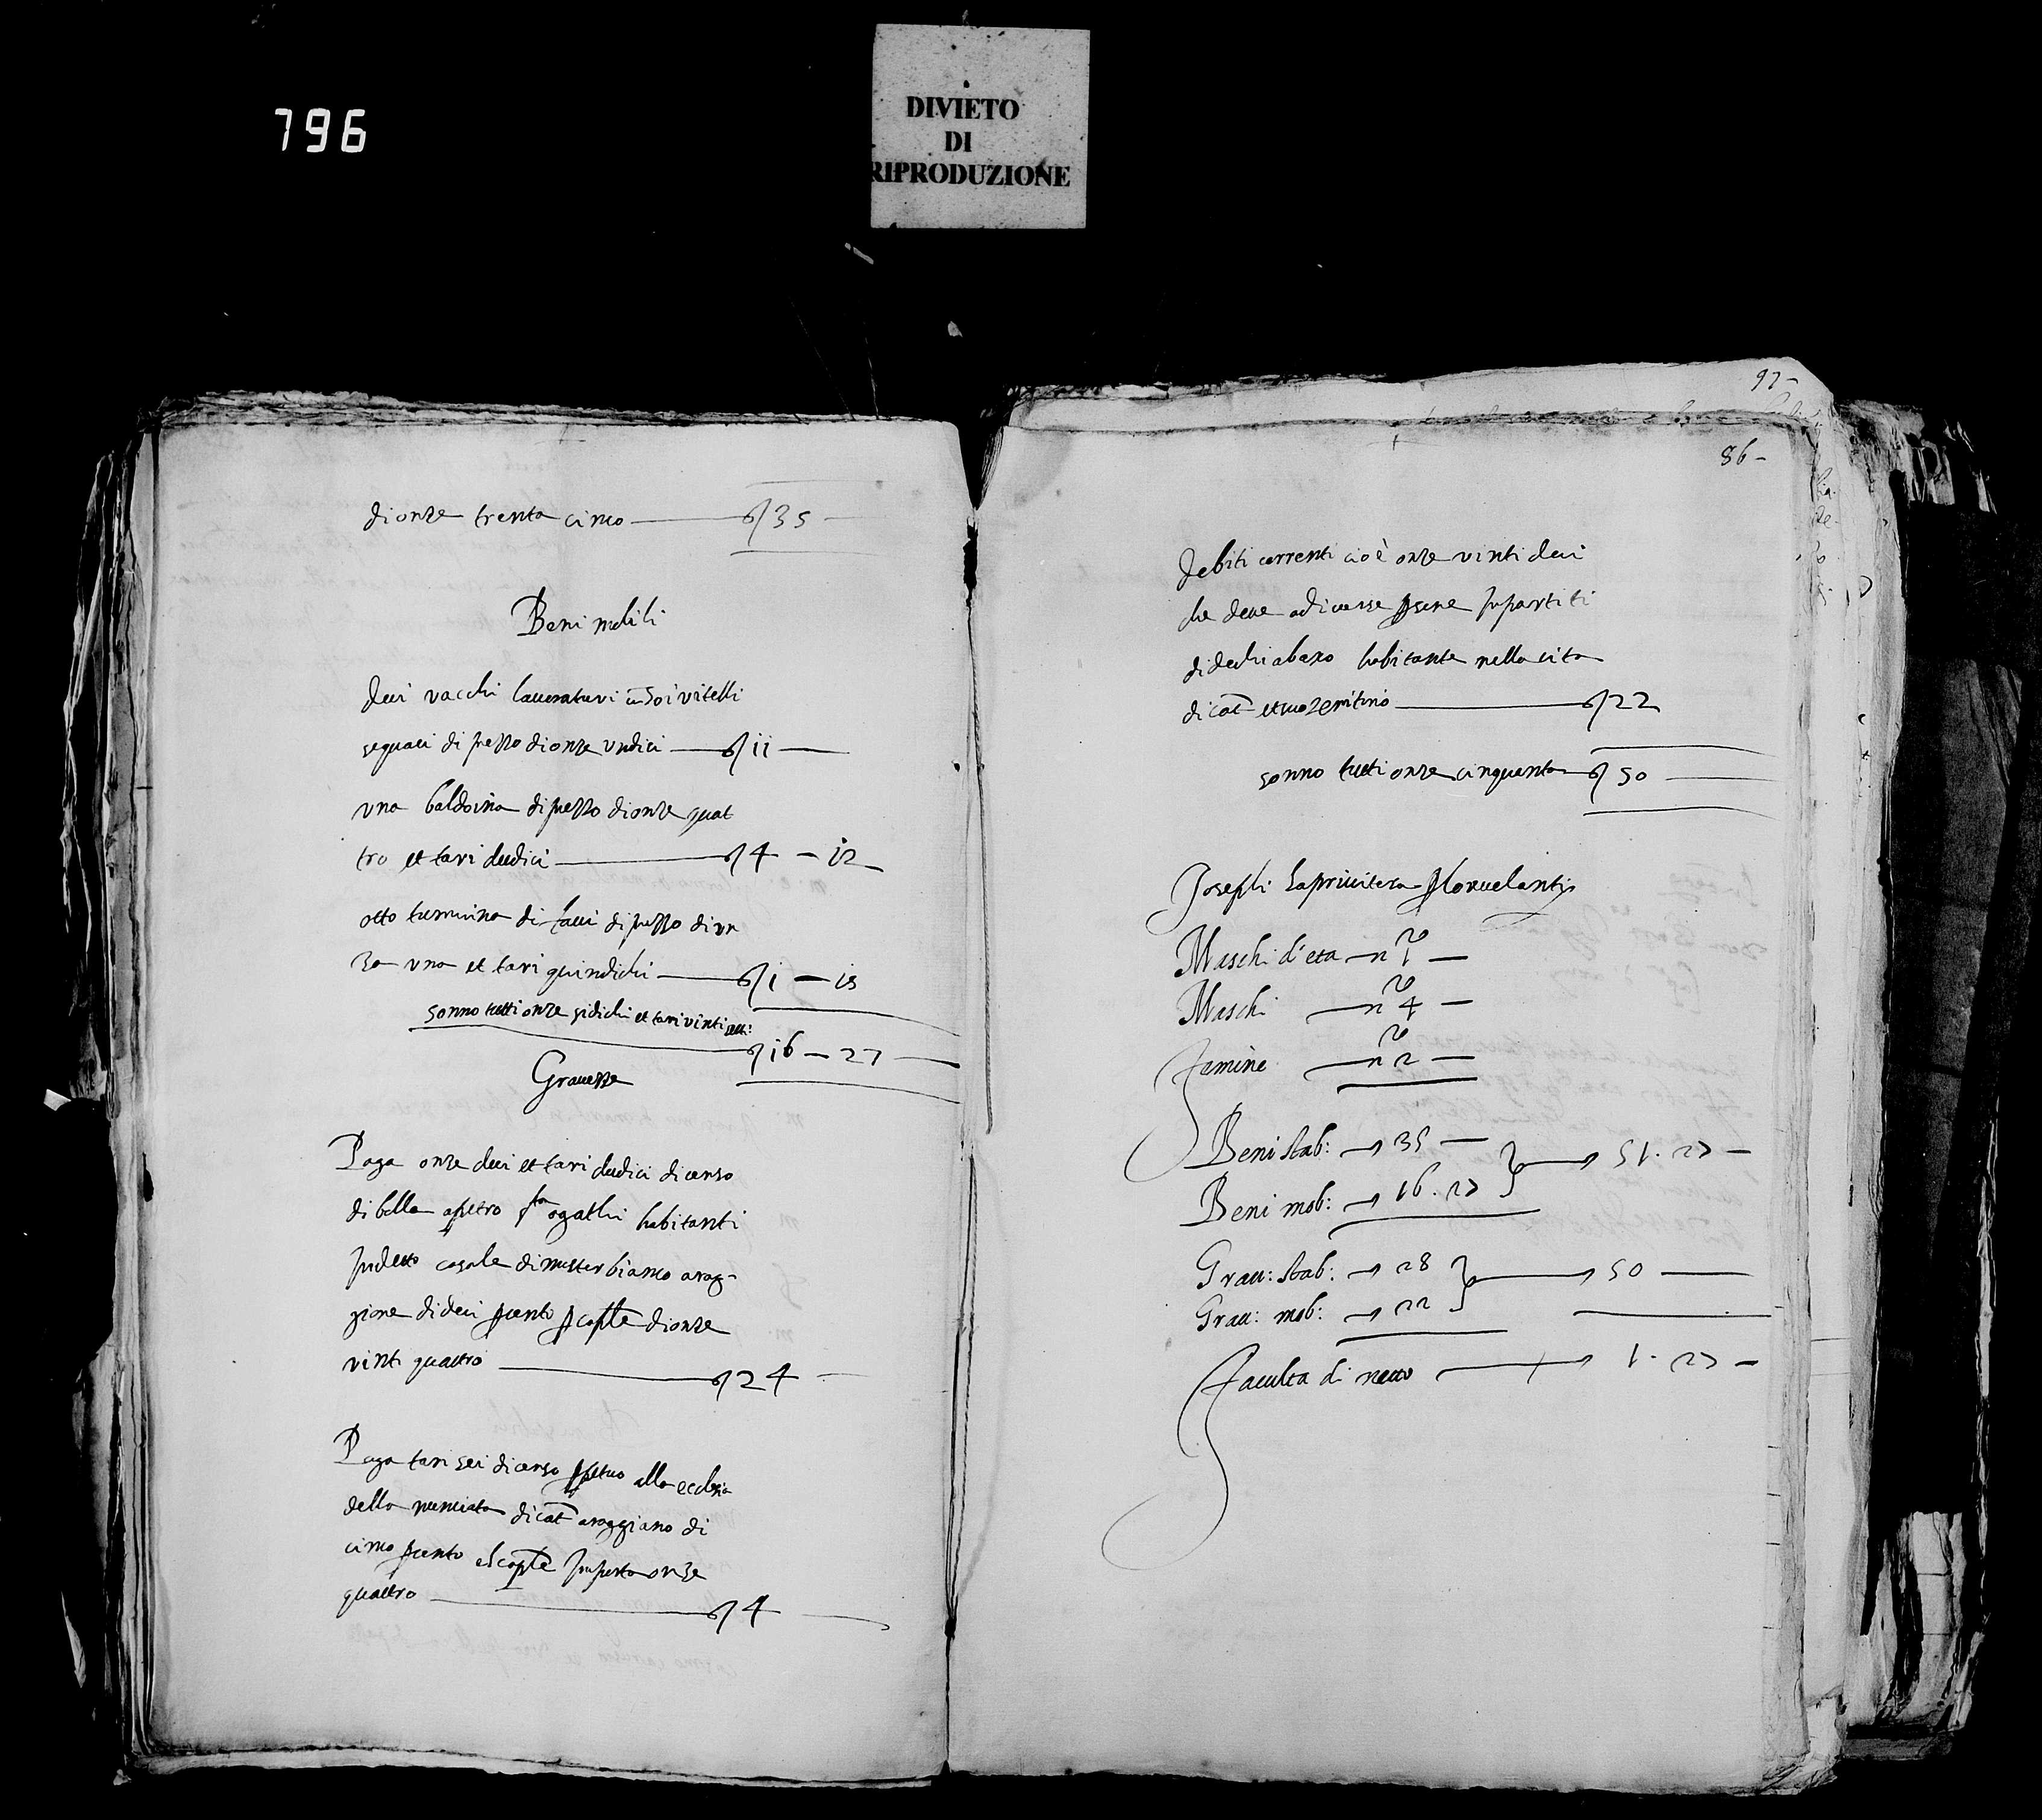 796
DIVIETO
DI
RIPRODUZIONE
di onze trenta cinco 35
Beni mobili
deci vacchi lavoraturi con soi vitelli
sequaci di prezzo di onze undici 11
una baldoina di prezzo di onze quat
tro et tarì dudici 4 - 12
otto tummina di favi di prezzo di un
za una et tari quindichi 1 - 15
sonno tutti onze sidichi et tari vinti setti:
16 - 27
Gravezze
Paga onze deci et tari dudici di censo
di bulla a petro sta agathi habitanti
in detto casale di mister bianco a rag-
gione di deci per cento per caple di onze
vinti quattro 24
Paga tari sei di censo perpetuo alla ecclesia
della nunciata di cat a raggiano di
cinco per cento el caple importa onze
quattro 4
97-
86-
debiti correnti cioè onze vinti deci
che deve a diverse persone in partiti
di dechi abaxo habitante nella cita
di cat et suo territino 22
sonno tutti onze cinquanta 50
Joseph la privitera
Maschi d'eta n.o 1
Maschi n.o 4
Famine n.o 2
Beni stab: 35 51. 27
Beni mob: 16. 27
Grav: stab: 28 50
Grav: mob: 22
Faculta di netto 1. 27